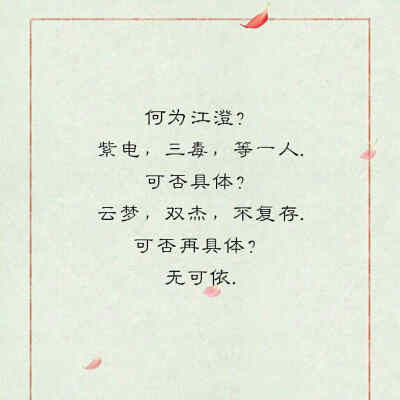 何为江澄?
紫电，三毒，等一人.
可否具体?
云梦，双杰，不复存.
可否再具体?
无可依.